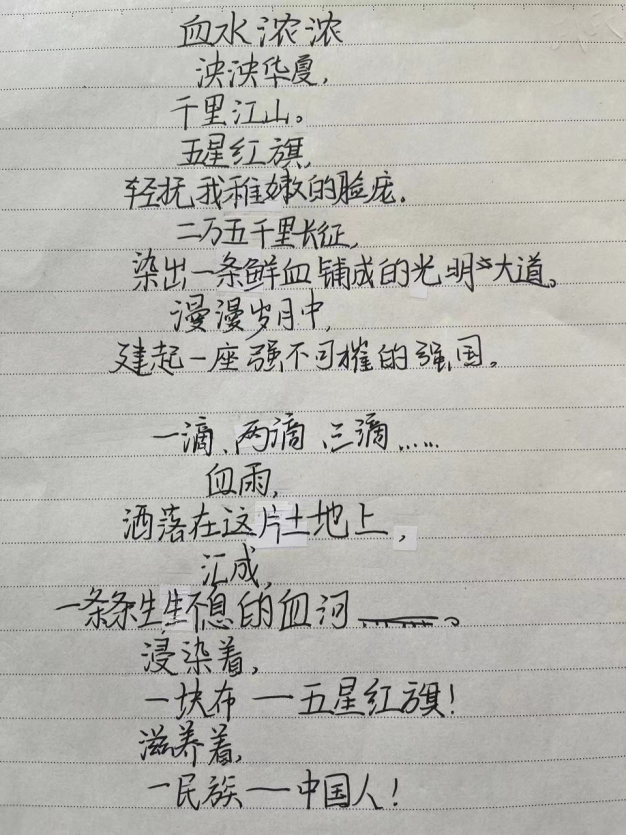 血水浓浓
泱泱华夏,
千里江山。
五星红旗,
轻抚我稚嫩的脸庞.
二万五千里长征,
染出一条鲜血铺成的光明大道。
漫漫岁月中,
建起一座强不可摧的强国。
一滴、两滴、三滴……
血雨,
洒落在这片土地上,
汇成,
一条条生生不息的血河。
浸染着,
一块布——五星红旗!
滋养着,
一民族——中国人!